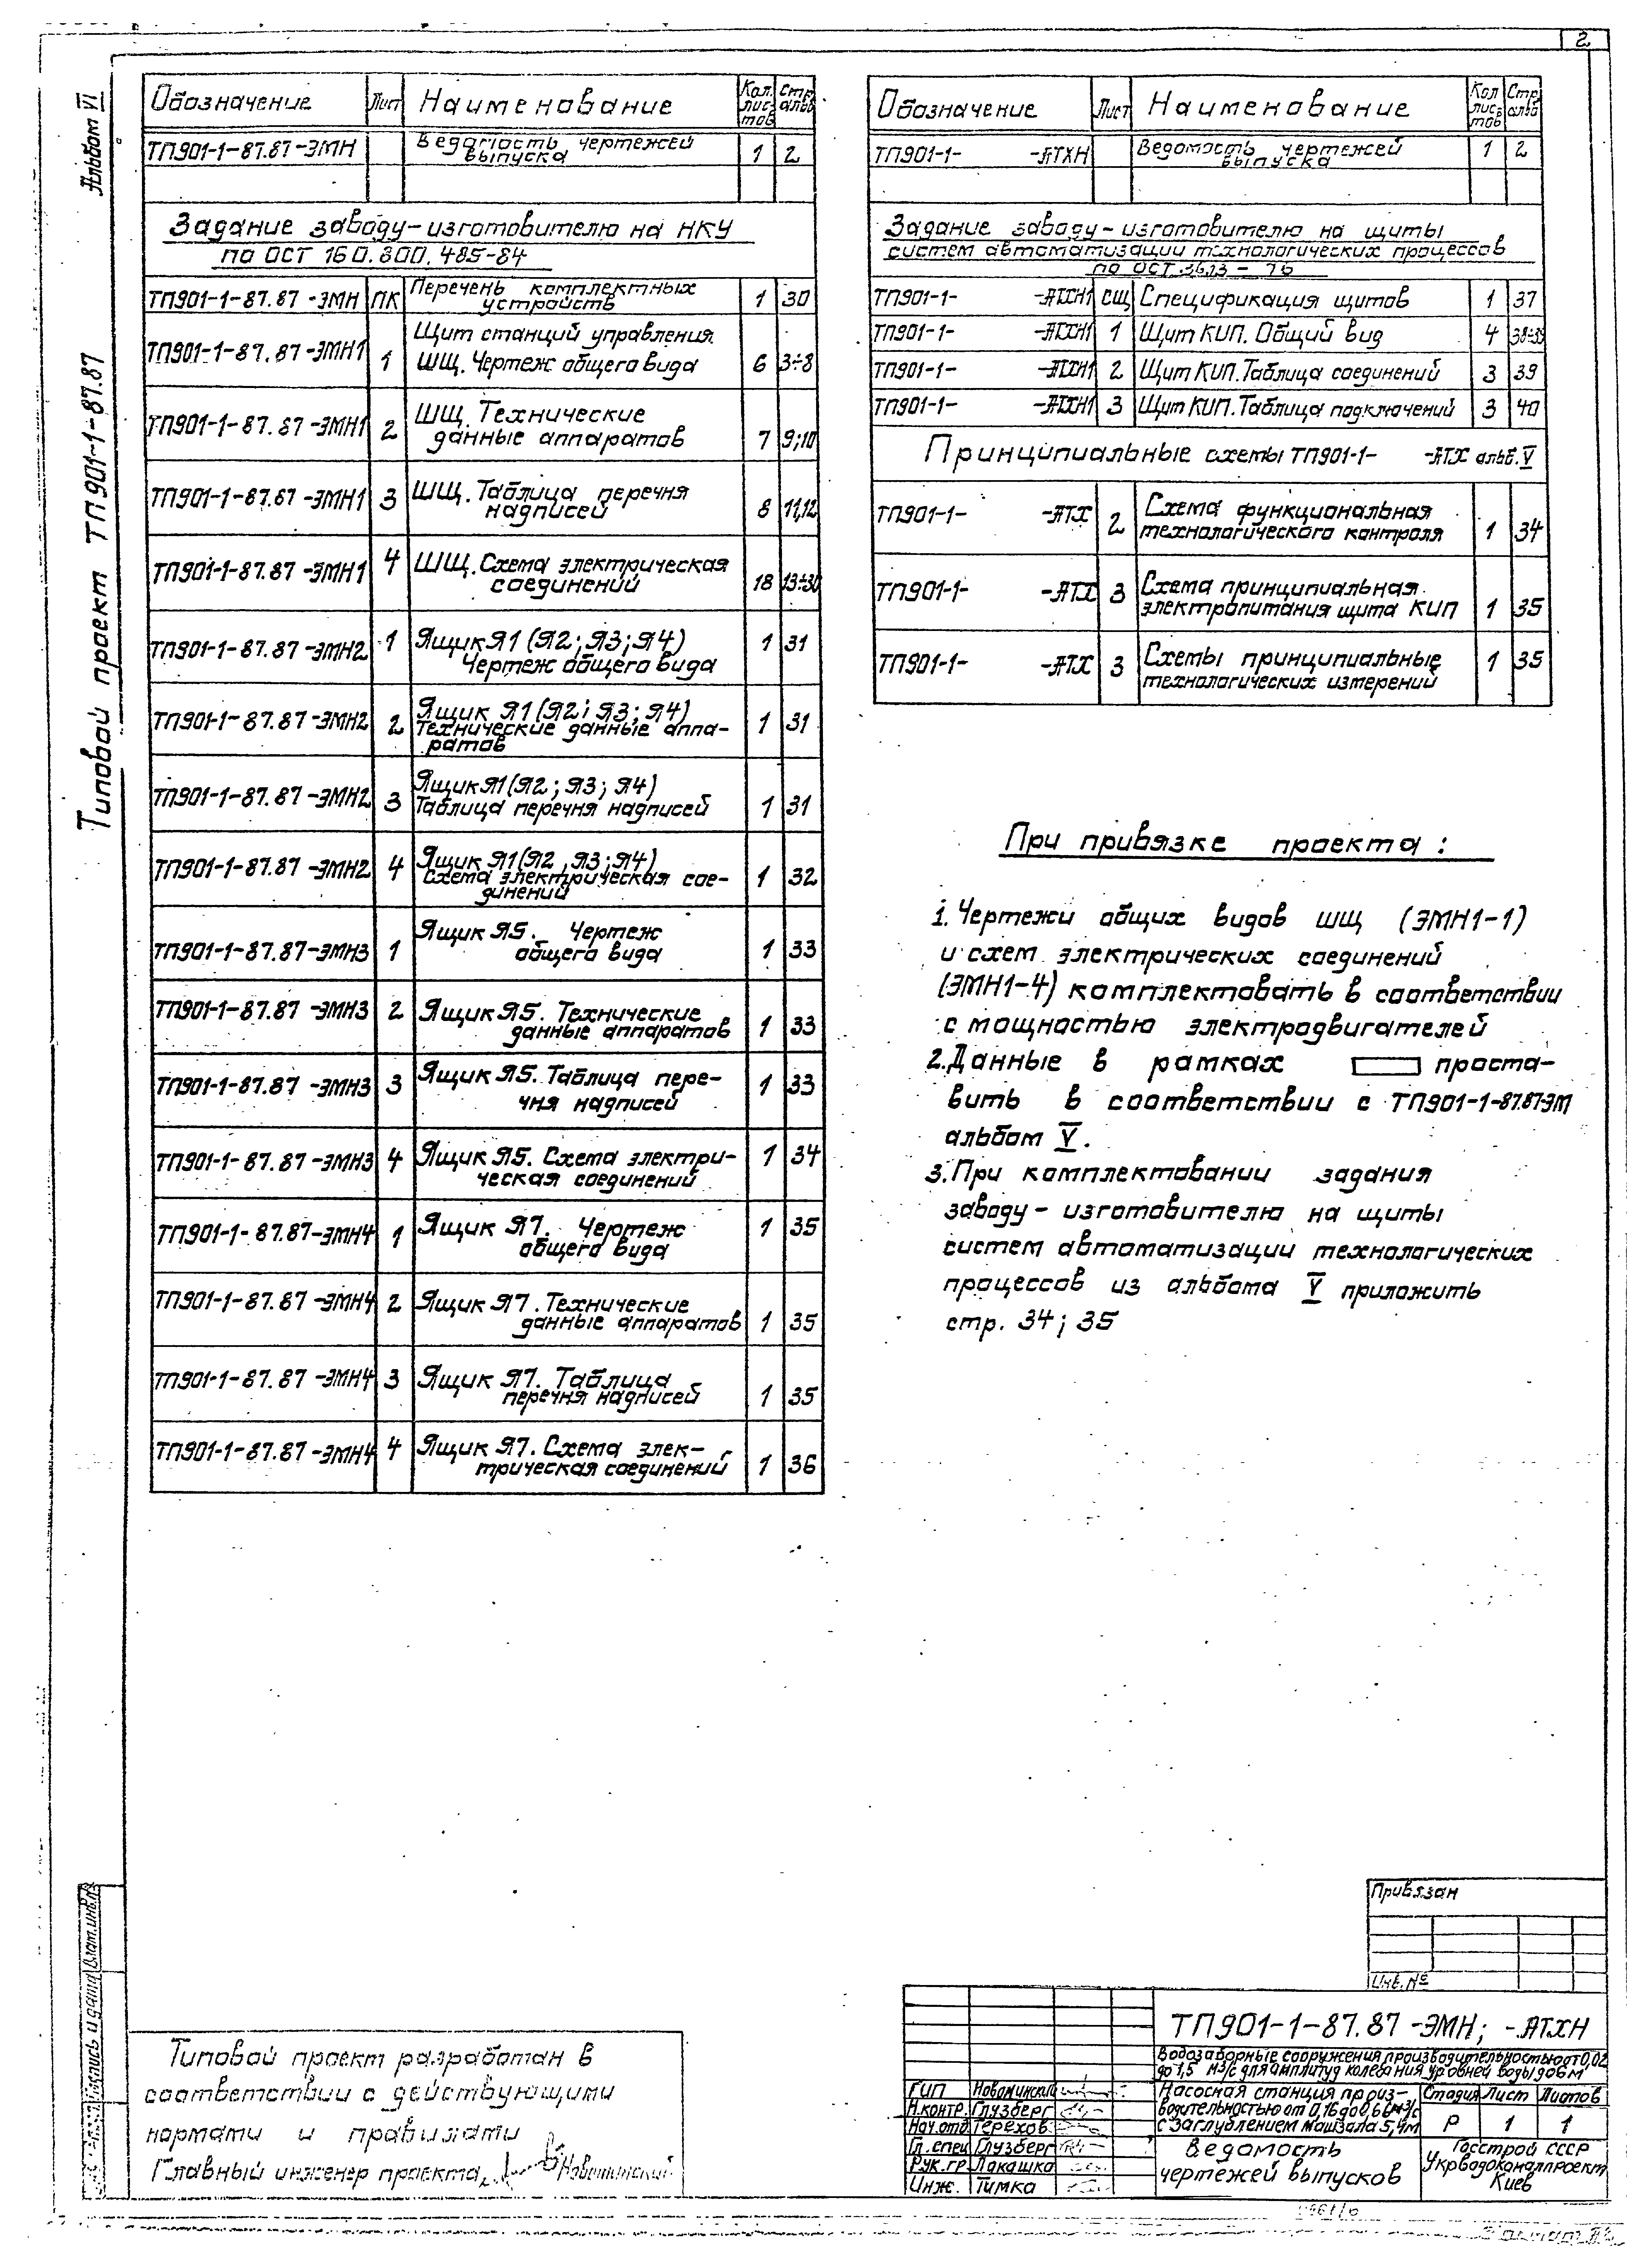 2
Альбом VI
Типовой проект ТП901-1-87.87
Обозначение Лист Наименование Кол. лис- тов Стр. альб
ТП901-1-87.87-ЭМН Ведомость чертежей выпуска 1 2
Задание заводу-изготовителю на НКУ
по ОСТ 160.800.485-84
ТП901-1-87.87-ЭМН ПК Перечень комплектных устройств 1 30
ТП901-1-87.87-ЭМН1 1 Щит станций управления ШЩ. Чертеж общего вида 6 3÷8
ТП901-1-87.87-ЭМН1 2 ШЩ. Технические данные аппаратов 7 9;10
ТП901-1-87.87-ЭМН1 3 ШЩ. Таблица перечня надписей 8 11,12
ТП901-1-87.87-ЭМН1 4 ШЩ. Схема электрическая соединений 18 13÷30
ТП901-1-87.87-ЭМН2 1 Ящик Я1 (Я2; Я3; Я4) Чертеж общего вида 1 31
ТП901-1-87.87-ЭМН2 2 Ящик Я1 (Я2; Я3; Я4) Технические данные аппа- ратов 1 31
ТП901-1-87.87-ЭМН2 3 Ящик Я1 (Я2; Я3; Я4) Таблица перечня надписей 1 31
ТП901-1-87.87-ЭМН2 4 Ящик Я1 (Я2, Я3; Я4) Схема электрическая сое- динений 1 32
ТП901-1-87.87-ЭМН3 1 Ящик Я5. Чертеж общего вида 1 33
ТП901-1-87.87-ЭМН3 2 Ящик Я5. Технические данные аппаратов 1 33
ТП901-1-87.87-ЭМН3 3 Ящик Я5. Таблица пере- чня надписей 1 33
ТП901-1-87.87-ЭМН3 4 Ящик Я5. Схема электри- ческая соединений 1 34
ТП901-1-87.87-ЭМН4 1 Ящик Я7. Чертеж общего вида 1 35
ТП901-1-87.87-ЭМН4 2 Ящик Я7. Технические данные аппаратов 1 35
ТП901-1-87.87-ЭМН4 3 Ящик Я7. Таблица перечня надписей 1 35
ТП901-1-87.87-ЭМН4 4 Ящик Я7. Схема элек- трическая соединений 1 36
Обозначение Лист Наименование Кол лис- тов Стр. альб
ТП901-1- -АТХН Ведомость чертежей выпуска 1 2
Задание заводу-изготовителю на щиты
систем автоматизации технологических процессов
по ОСТ 36.13-76
ТП901-1- -АТХН1 СЩ Спецификация щитов 1 37
ТП901-1- -АТХН1 1 Щит КИП. Общий вид 4 38÷39
ТП901-1- -АТХН1 2 Щит КИП. Таблица соединений 3 39
ТП901-1- -АТХН1 3 Щит КИП. Таблица подключений 3 40
Принципиальные схемы ТП901-1- -АТХ альб. V
ТП901-1- -АТХ 2 Схема функциональная технологического контроля 1 34
ТП901-1- -АТХ 3 Схема принципиальная электропитания щита КИП 1 35
ТП901-1- -АТХ 3 Схемы принципиальные технологических измерений 1 35
При привязке проекта:
1. Чертежи общих видов ШЩ (ЭМН1-1)
и схем электрических соединений
(ЭМН1-4) комплектовать в соответствии
с мощностью электродвигателей
2. Данные в рамках проста-
вить в соответствии с ТП901-1-87.87-ЭМ
альбом V.
3. При комплектовании задания
заводу-изготовителю на щиты
систем автоматизации технологических
процессов из альбома V приложить
стр. 34; 35
Привязан
Инв. №
Взам.инв.№
Подпись и дата
Типовой проект разработан в
соответствии с действующими
нормами и правилами
Главный инженер проекта Новоминский
ТП901-1-87.87-ЭМН; -АТХН
Водозаборные сооружения производительностью от 0,02
до 1,5 м3/с для амплитуд колебания уровней воды до 6м
ГИП Новоминский
Н.контр. Глузберг
Нач.отд Терехов
Гл.спец Глузберг
Рук.гр. Лакашка
Инж. Тимка
Насосная станция произ-
водительностью от 0,16 до 0,66 м3/с
с заглублением машзала 5,4м
Стадия Лист Листов
Р 1 1
Ведомость
чертежей выпусков
Госстрой СССР
Укрводоканалпроект
Киев
Формат